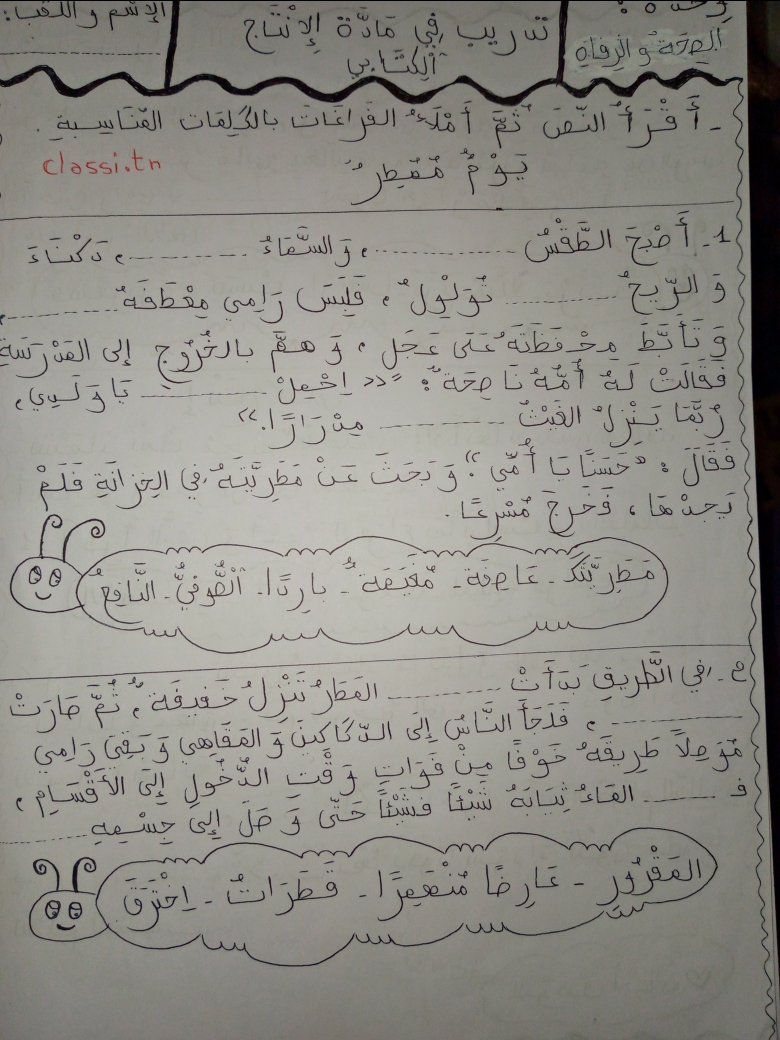 الإسم و اللقب:
تدريب في مَادَّة الإِنْتَاج
الكِتَابي
الصِحَة و الرِفاه
ـ أَقْرَأُ النَّصَ ثُمَّ أَمْلَأُ الفَرَاغَات بالكَلِمَات المُنَاسِبةِ .
classi.tn
يَوْمٌ مُمْطِرٌ
1ـ أَصْبَحَ الطَّقْسُ ............، وَ السَّمَاءُ ............، دَكْنَاءَ
وَ الرِّيحُ ............ تُوَلْوِلُ ، فَلَبِسَ رَامِي مِعْطَفَهُ ............،
وَ تَأَبَّطَ مِحْفَظَتَهُ عَلَى عَجَلٍ ، وَ هَمَّ بالخُرُوجِ إلى المَدْرَسَةِ
فَقَالَتْ لَهُ أُمُّهُ نَاصِحَةً : << اِحْمِلْ ............ يَا وَلَدِي ،
رُبَّمَا يَنْزِلُ الغَيْثُ ............ مِدْرَارًا. >>
فَقَالَ : " حَسَنًا يَا أُمِّي " وَ بَحَثَ عَنْ مَطَرِيَّتَهُ في الخِزَانَةِ فَلَمْ
يَجِدْهَا ، فَخَرجَ مُسْرِعًا.
مَطَرِيَّتَكَ ـ عَاصِفَة ـ مُغَيّمَةٌ ـ بارِدًا. ـ الصُّوفيُّ ـ النَّافِعُ
2ـ في الطَّرِيقِ بَدَأَتْ ............ المَطَرُ تَنْزِلُ خَفِيفَةً ، ثُمَّ صَارَتْ
............ ، فَلَجَأَ النَّاسُ إِلَى الدّكَاكينَ وَ المَقَاهِي وَ بَقِيَ رَامِي
مُوَصِلاً طَرِيقَهُ خَوْفًا مِنْ فَوَاتِ وَقْتِ الدُّخُولِ إِلَى الأَقْسَامِ ،
فـ ............ المَاءُ ثِيَابَهُ شَيْئًا فَشَيْئًا حَتَّى وَصَلَ إِلى جِسْمِهِ ............
المَقْرُورِ ـ عَارِضًا مُنْهَمِرًا ـ قَطَرَاتُ ـ اِخْتَرَقَ